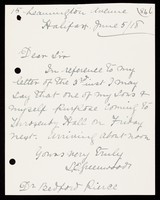 15 Leamington Avenue
Halifax June 5/15
Dear Sir
In reference to my
letter of the 3rd inst I may
say that one of my Sons &
myself purpose coming to
Hall on Friday
next. arriving about noon
Yours very truly
Greenwood
Dr Bedford Pierce